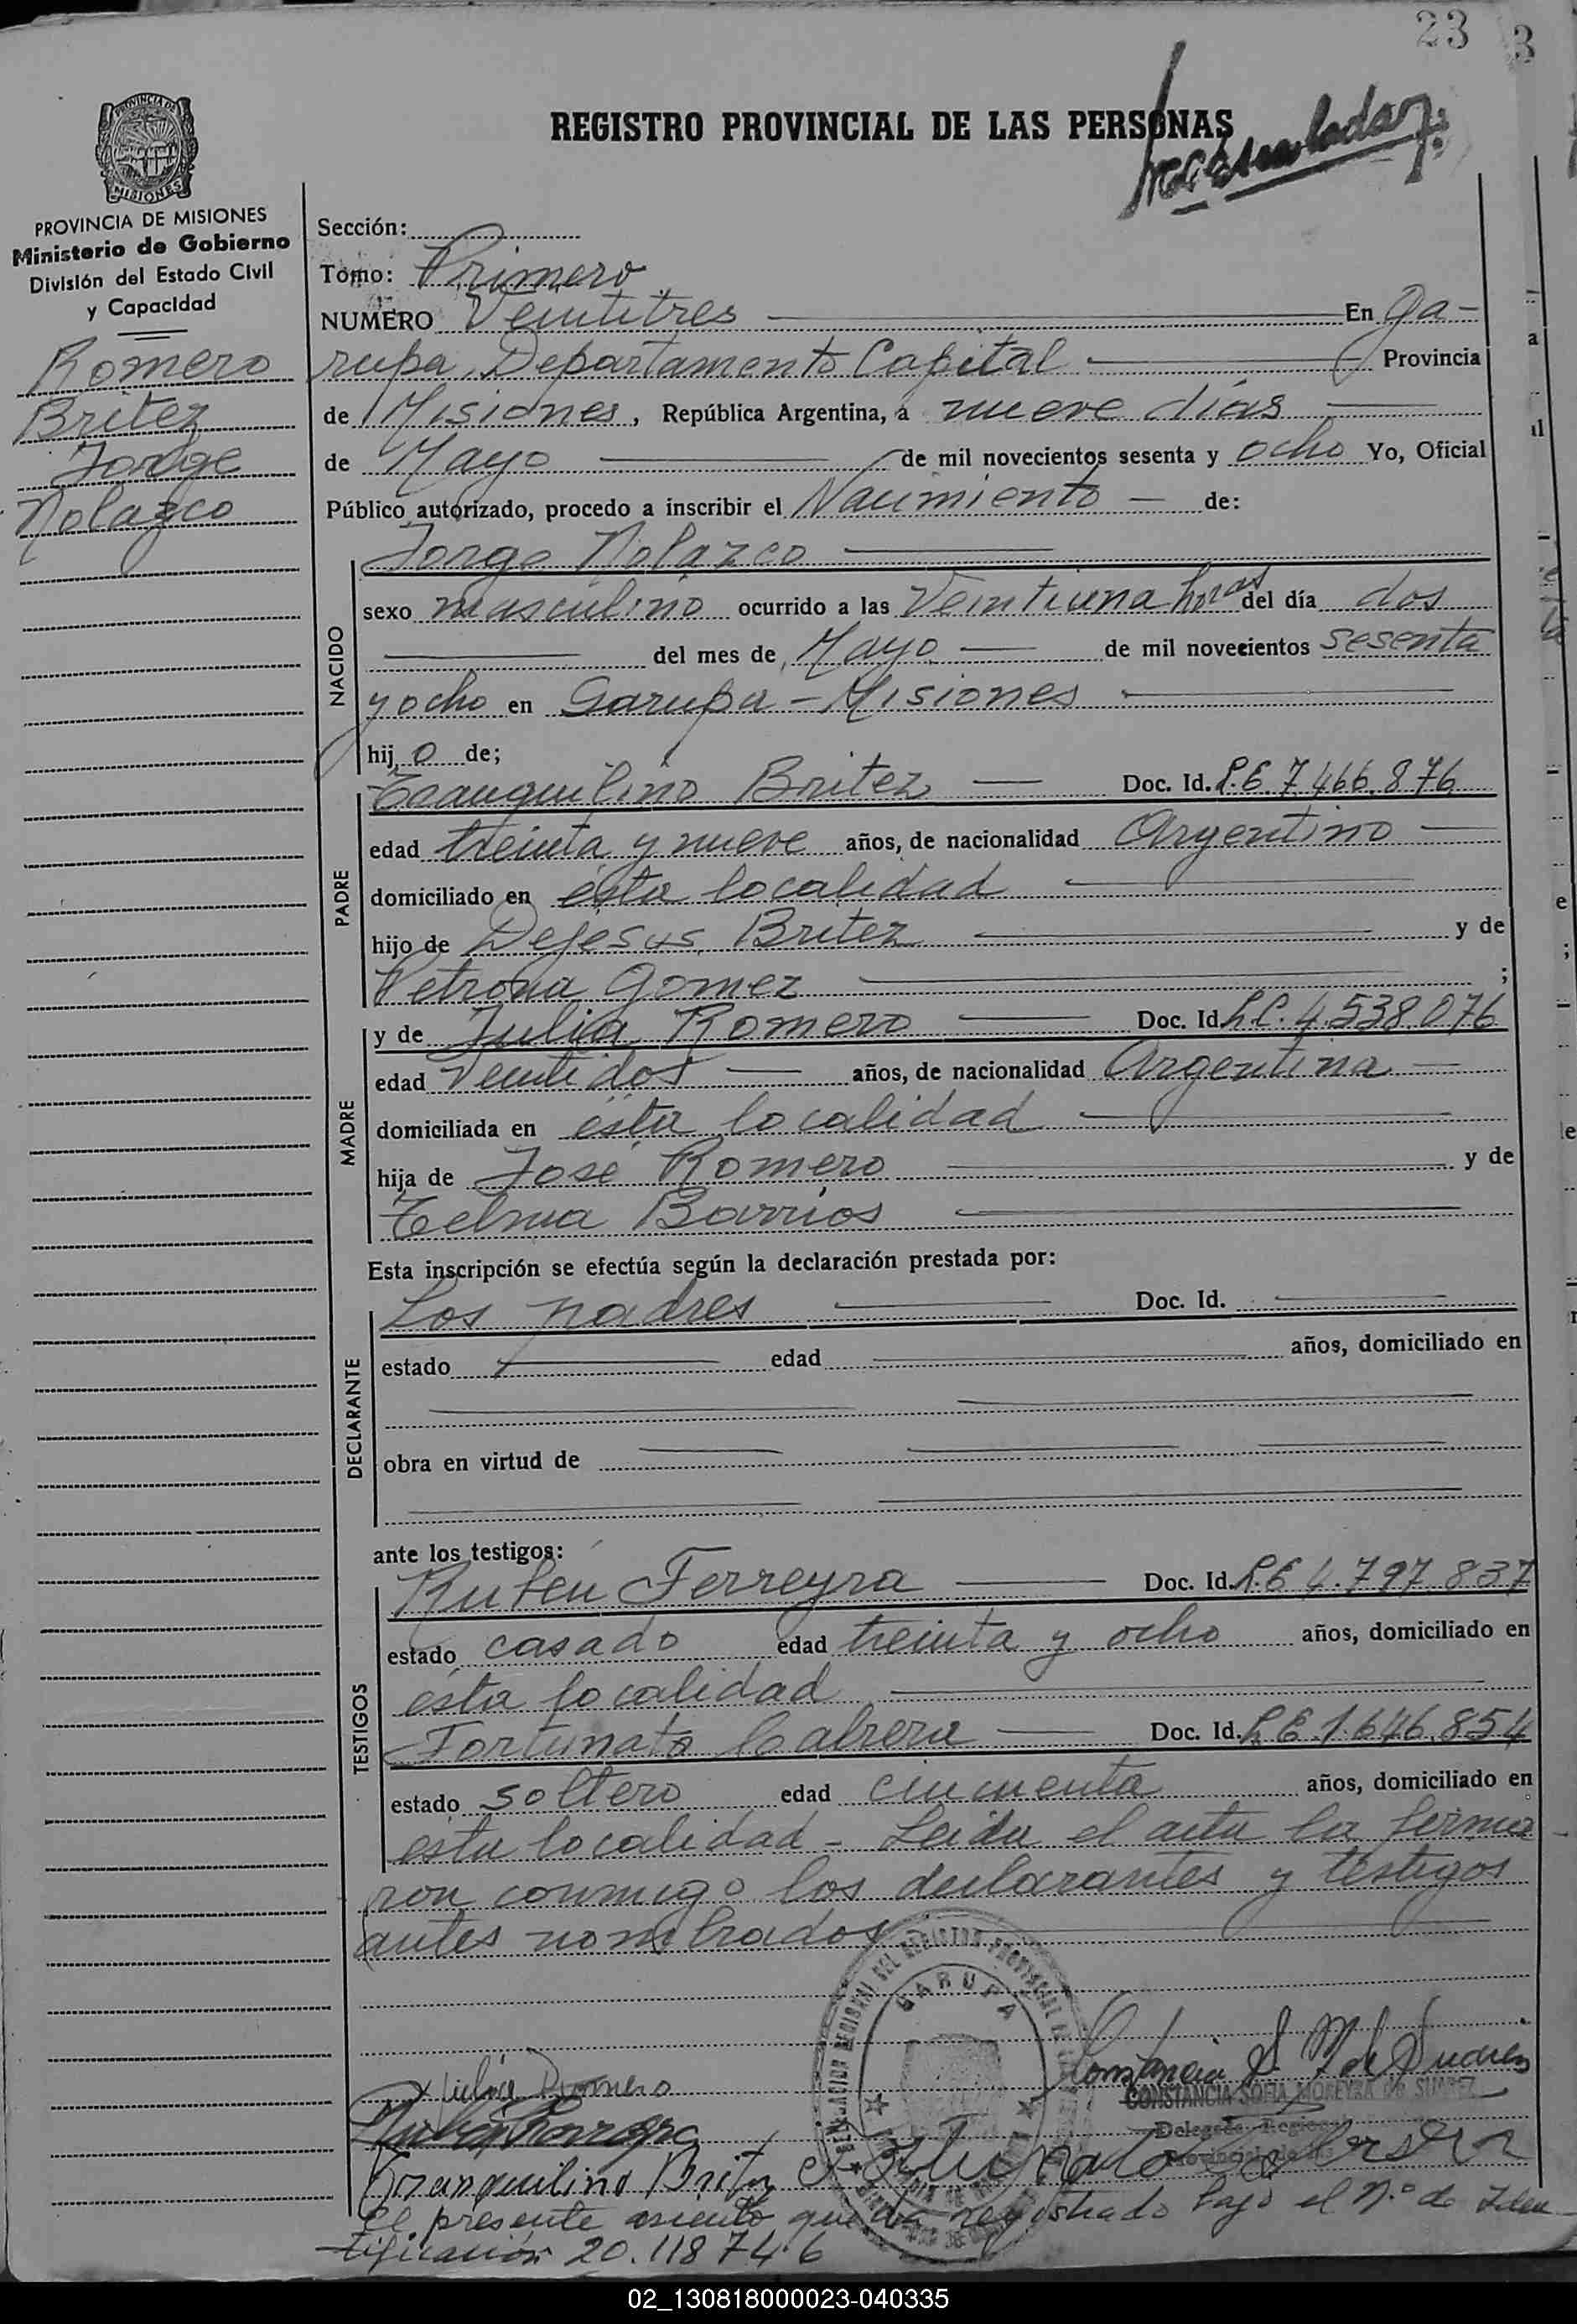 23 3
REGISTRO PROVINCIAL DE LAS PERSONAS
PROVINCIA DE
MISIONES
PROVINCIA DE MISIONES
Ministerio de Gobierno
División del Estado Civil
y Capacidad
Romero
Britez
Jorge
Nolazco
Sección:
Tomo: Primero
NUMERO Veintitres En Ga-
rupa, Departamento Capital Provincia
de Misiones, República Argentina, a nueve días
de Mayo de mil novecientos sesenta y ocho Yo, Oficial
Público autorizado, procedo a inscribir el Nacimiento de:
Jorge Nolazco
NACIDO
sexo masculino ocurrido a las Veintiuna horas del día dos
del mes de Mayo de mil novecientos sesenta
y ocho en Garupa - Misiones
hijo de;
PADRE
Tranquilino Britez Doc. Id. L.E. 7.466.876
edad treinta y nueve años, de nacionalidad Argentino
domiciliado en ésta localidad
hijo de Dejesus Britez y de
Petrona Gomez ;
MADRE
y de Julia Romero Doc. Id. L.C. 4.538.076
edad Veintidos años, de nacionalidad Argentina
domiciliada en ésta localidad
hija de José Romero y de
Telma Barrios
Esta inscripción se efectúa según la declaración prestada por:
DECLARANTE
Los padres Doc. Id.
estado edad años, domiciliado en
obra en virtud de
ante los testigos:
TESTIGOS
Ruben Ferreyra Doc. Id. L.E 4.797.837
estado casado edad treinta y ocho años, domiciliado en
ésta localidad
Fortunato Cabrera Doc. Id. L.E 1.646.854
estado soltero edad cincuenta años, domiciliado en
esta localidad - Leida el acta la firma
ron conmigo los declarantes y testigos
antes nombrados
GARUPA
Julia Romero
Constancia S. M de Suarez
CONSTANCIA SOFIA MOREYRA DE SUAREZ
Tranquilino Britez
Fortunato Cabrera
El presente asiento queda registrado bajo el N.º de Iden
tificación 20.118746
02_130818000023-040335